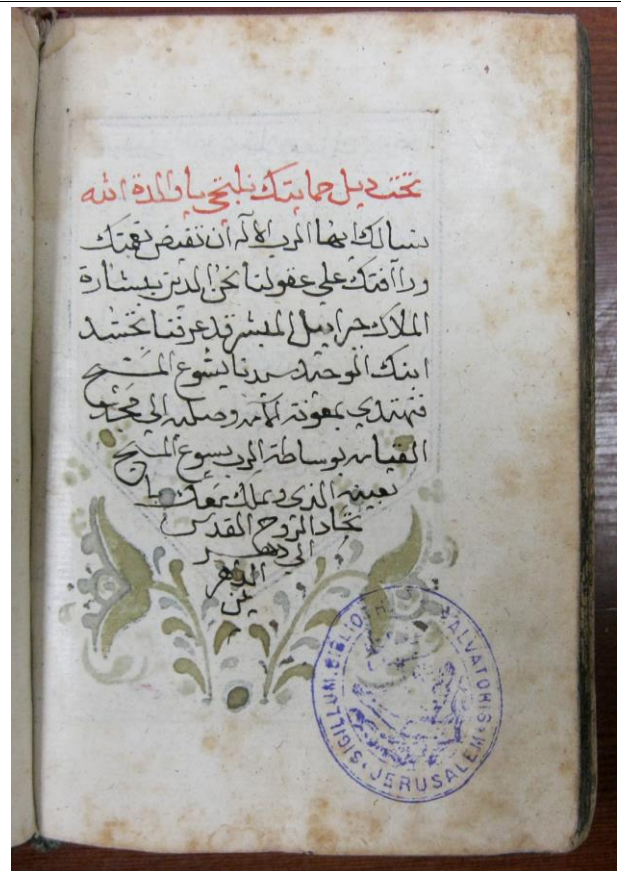 تحت ديل حمايتك نلتجي يا والدة الله
نسالك ايها الرب الاله ان تفيض نعمتك
وراافتك علي عقولنا نحن الدين ببشارة
الملاك جبراييل المبشر قد عرفنا تجسد
ابنك الوحيد سيدنا يشوع المسيح
فنهتدي بمعونة الامه وصليبه الي مجد
القيامه بوساطة الرب يسوع المسيح
بعينه الذي ويملك معك با
تحاد الروح القدس
الي دهر
الداهر
ين
SIGILLUM BIBLIOTH. S. SALVATORIS JERUSALEM